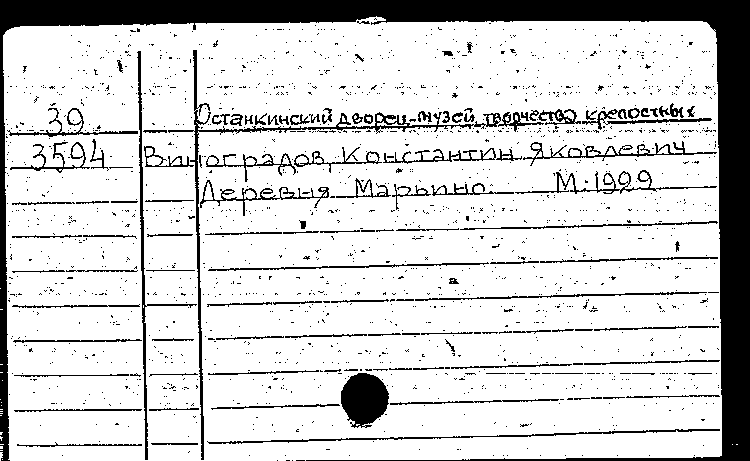 39 Останкинский дворец-музей творчество крепостных
3594 Виноградов, Константин Яковлевич
Деревня Марьино. М. 1929